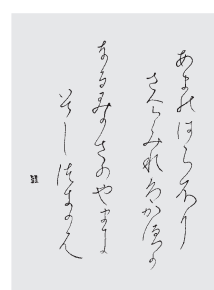 あまのはらふり
さけみれはかすか
なるみかさのやまに
いてしつきかも